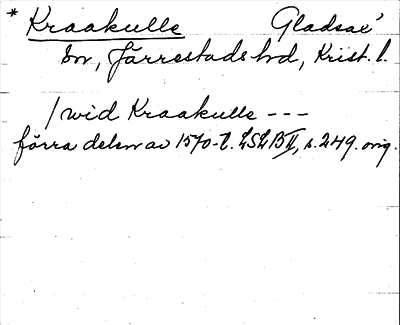 * Kraakulle Gladsax'
sn, Järrestads hd, Krist. l.
/ wid Kraakulle ---
förra delen av 1570-t. LSLB II, s. 249. orig.